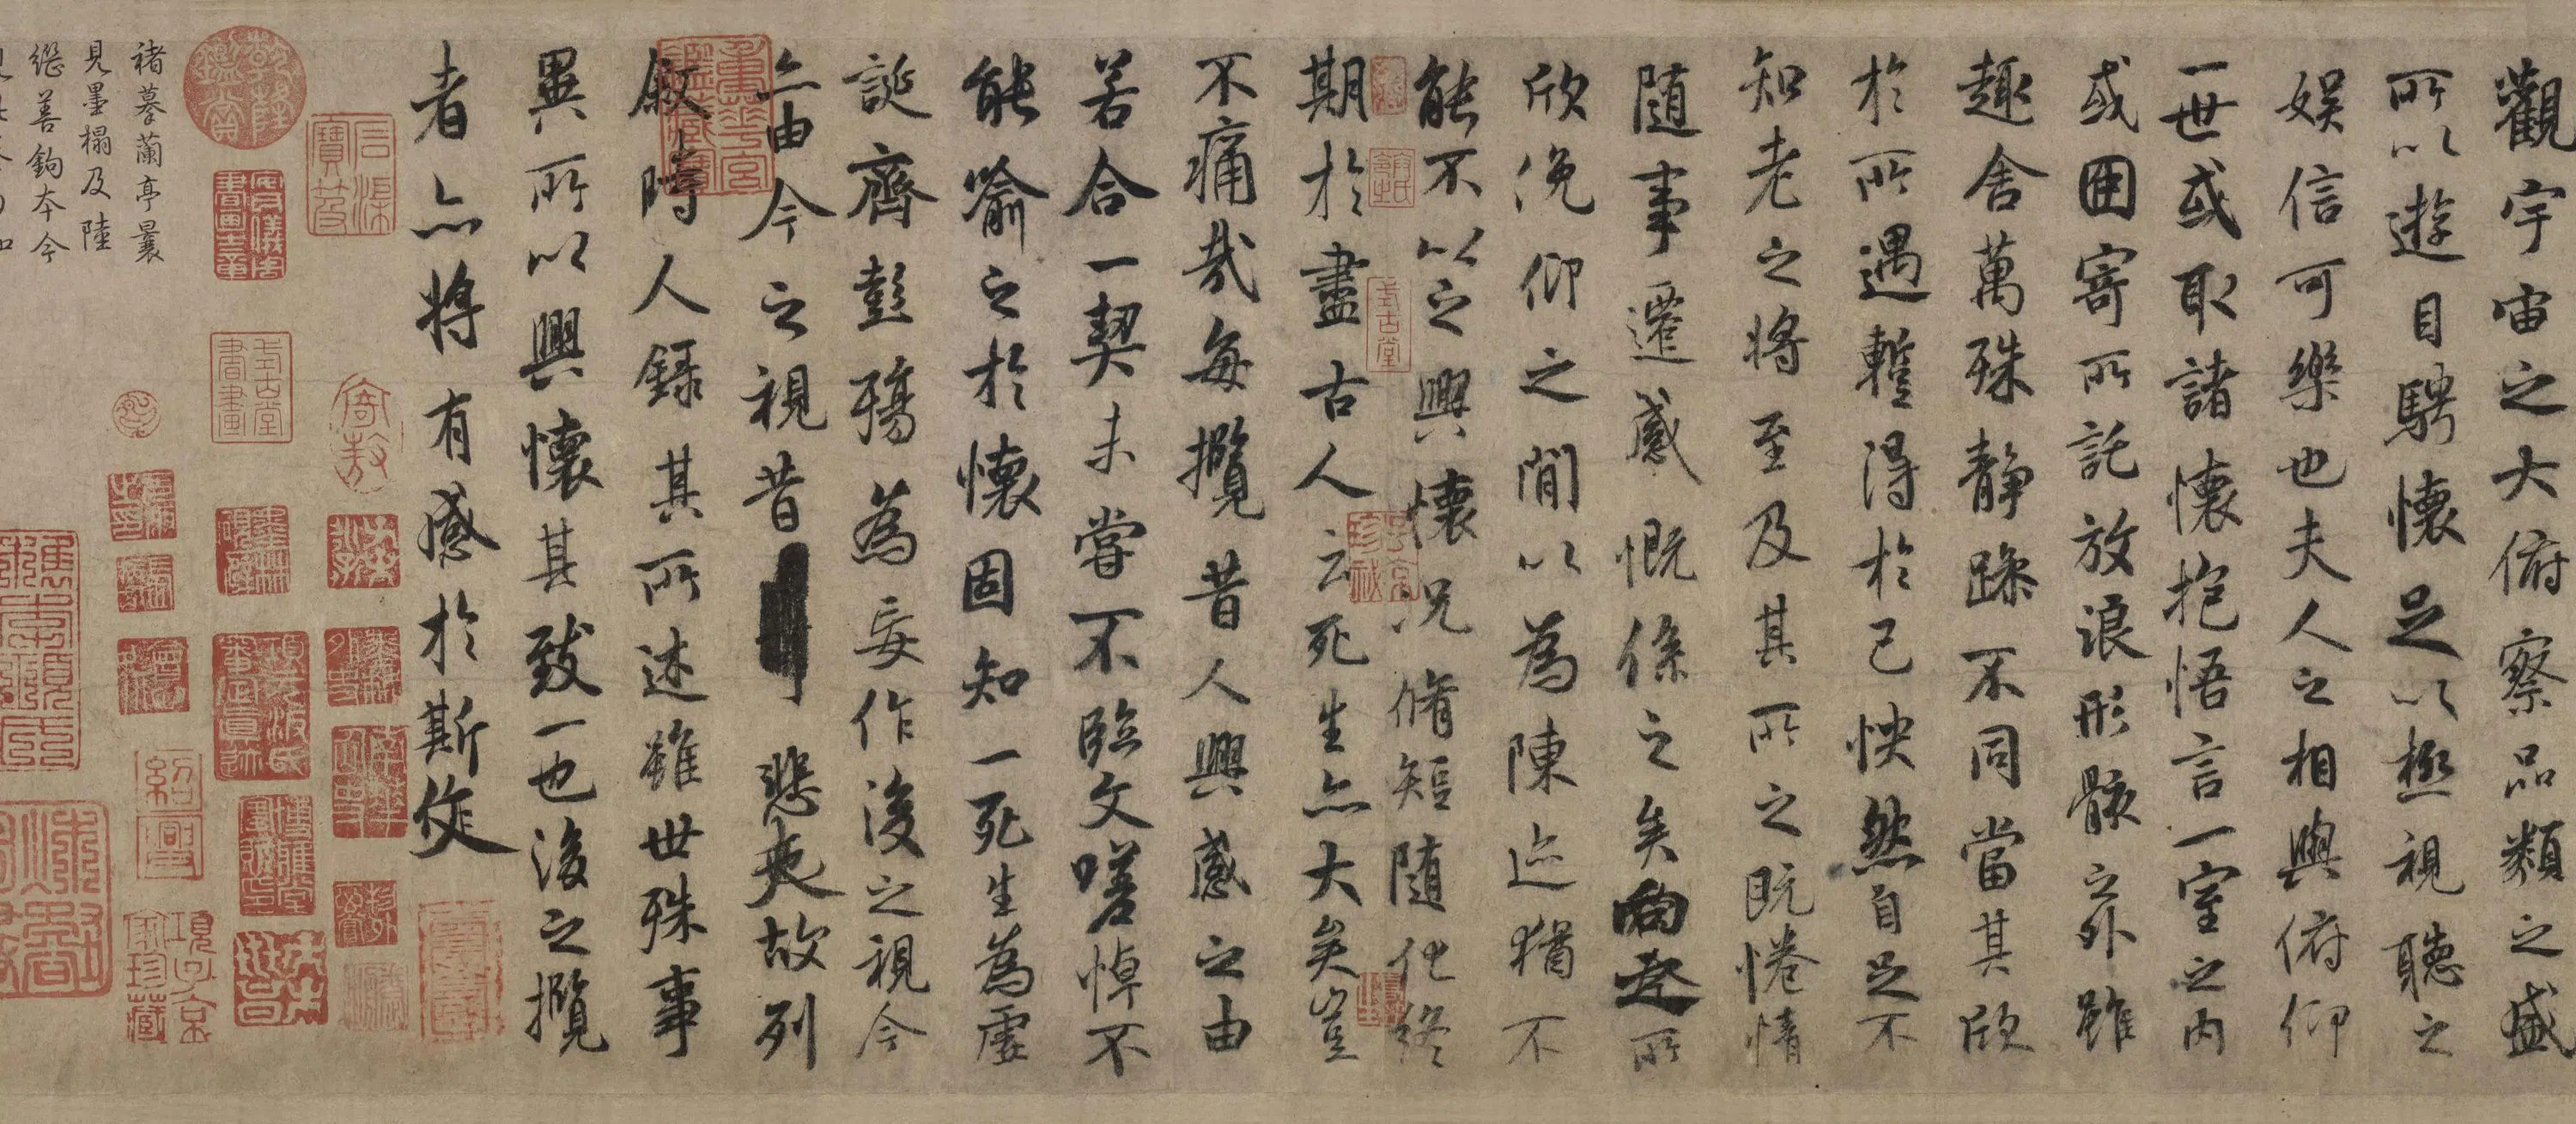 觀宇宙之大俯察品類之盛
所以遊目騁懷足以極視聽之
娛信可樂也夫人之相與俯仰
一世或取諸懷抱悟言一室之內
或因寄所託放浪形骸之外雖
趣舍萬殊靜躁不同當其欣
於所遇蹔得於己怏然自足不
知老之將至及其所之既惓情
隨事遷感慨係之矣向之所
欣俛仰之閒以為陳迹猶不
能不以之興懷況脩短隨化終
期於盡古人云死生亦大矣豈
不痛哉每攬昔人興感之由
若合一契未嘗不臨文嗟悼不
能喻之於懷固知一死生為虛
誕齊彭殤為妄作後之視今
亦由今之視昔悲夫故列
敘時人錄其所述雖世殊事
異所以興懷其致一也後之攬
者亦將有感於斯文
重華宮鑑藏寶
乾隆鑑賞
紹興
項子京家珍藏
褚摹蘭亭曩
見墨榻及陸
繼善鉤本今